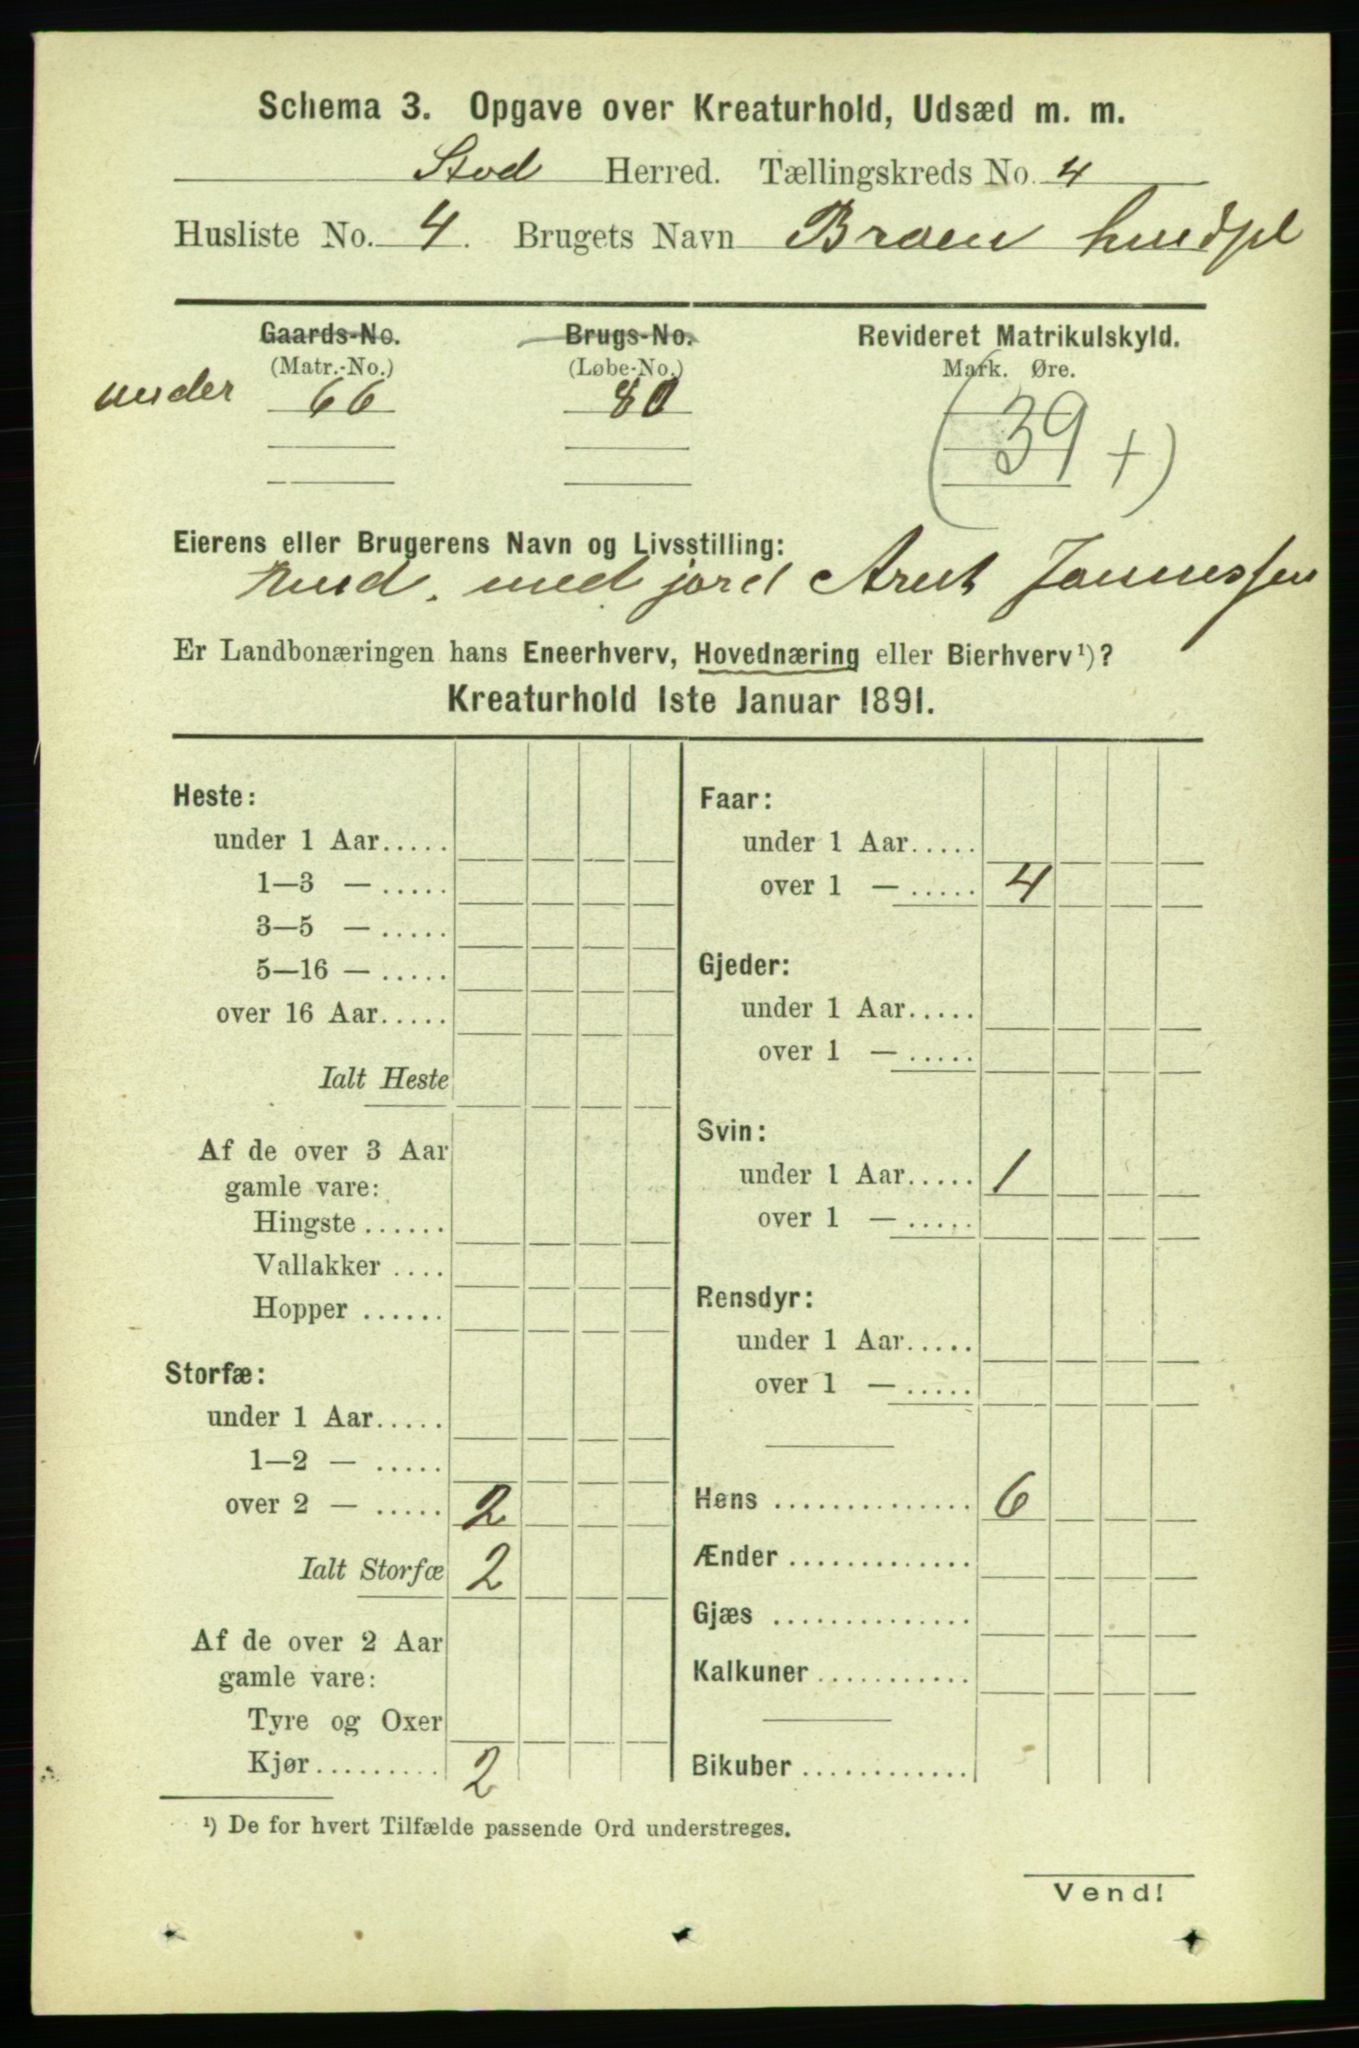 Schema 3. Opgave over Kreaturhold, Udsæd m. m.
Stod Herred. Tællingskreds No. 4
Husliste No. 4. Brugets Navn Braen husdpl
Gaards-No. Brugs-No. Revideret Matrikulskyld.
(Matr.-No.) (Løbe-No.) Mark. Øre.
under 66 80
(39 +)
Eierens eller Brugerens Navn og Livsstilling:
husd. med jord Arnt Jonnessen
Er Landbonæringen hans Eneerhverv, Hovednæring eller Bierhverv¹)?
Kreaturhold 1ste Januar 1891.
Heste:
under 1 Aar.....
1—3 — .....
3—5 — .....
5—16 — .....
over 16 Aar.....
Ialt Heste
Af de over 3 Aar
gamle vare:
Hingste ......
Vallakker ....
Hopper ......
Storfæ:
under 1 Aar.....
1—2 — .....
over 2 — ..... 2
Ialt Storfæ 2
Af de over 2 Aar
gamle vare:
Tyre og Oxer
Kjør......... 2
Faar:
under 1 Aar.....
over 1 — ..... 4
Gjeder:
under 1 Aar.....
over 1 — .....
Svin:
under 1 Aar..... 1
over 1 — .....
Rensdyr:
under 1 Aar.....
over 1 — .....
Høns .............. 6
Ænder .............
Gjæs ..............
Kalkuner ...........
Bikuber ............
¹) De for hvert Tilfælde passende Ord understreges.
Vend!